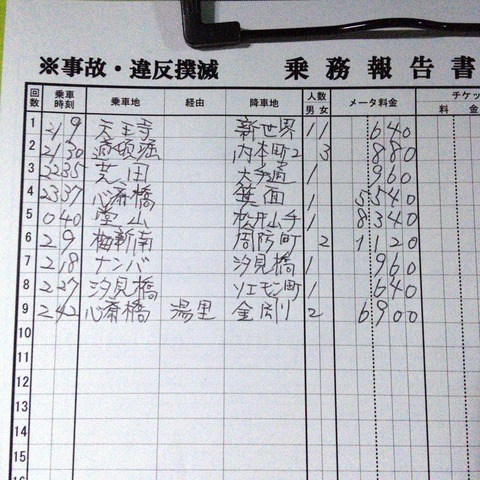 ※事故・違反撲滅 乗務報告書
回数 乗車時刻 乗車地 経由 降車地 人数 男 女 メータ料金 チケッ 料 金
1 219 天王寺 新世界 1 1 640
2 2130 道頓堀 内本町2 3 880
3 2235 芝田 大手通 1 960
4 2337 心斎橋 箕面 1 5540
5 040 堂山 松井山手 1 8340
6 29 梅新南 周防町 2 1120
7 218 ナンバ 汐見橋 1 960
8 227 汐見橋 ソエモン町 1 640
9 242 心斎橋 湯里 金剛 2 6900
10
11
12
13
14
15